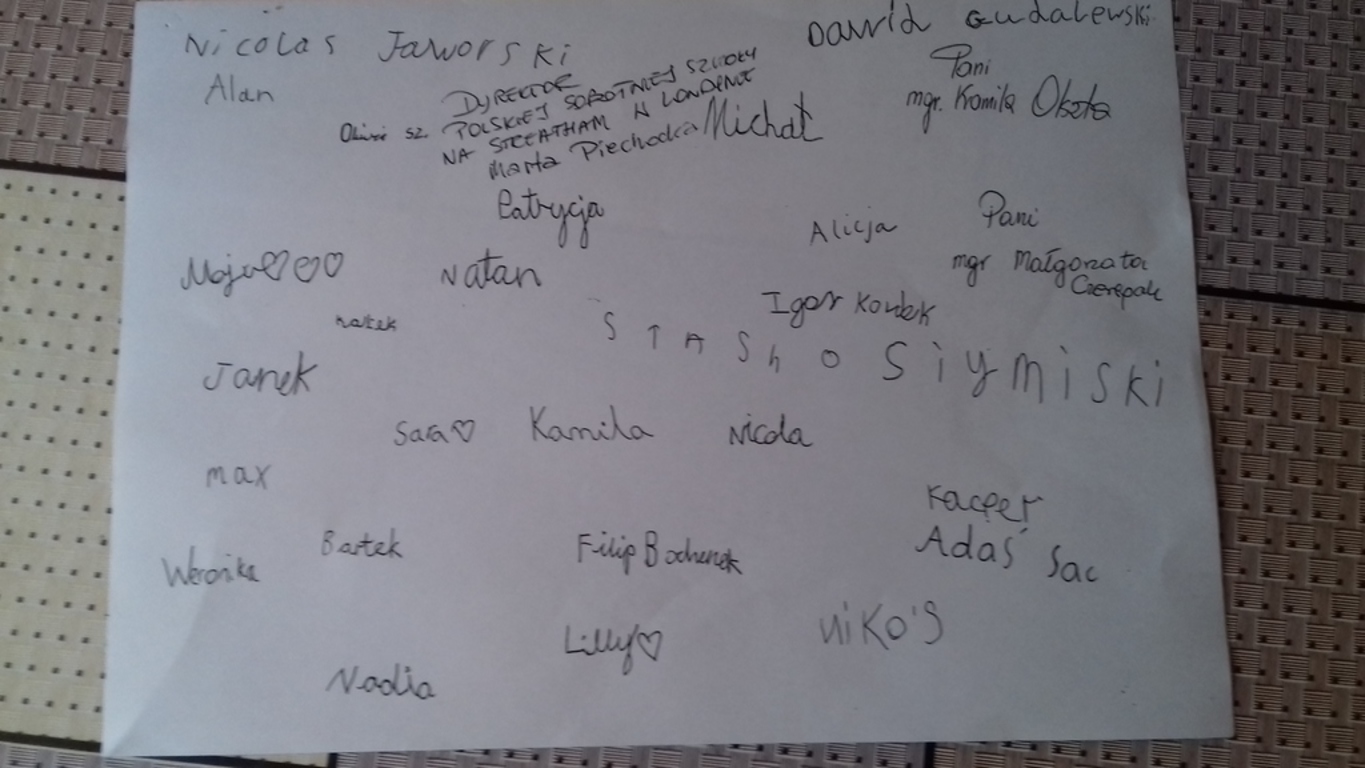 Nicolas Jaworski
Dawid Gudalewski
Alan
DYREKTOR
POLSKIEJ SOBOTNIEJ SZKOŁY
NA STREATHAM W LONDYNIE
Marta Piechocka
sz.
Michał
Pani
mgr. Kamila Okota
Patrycja
Alicja
Pani
mgr Małgorzata
Czerepak
Maja♡♡♡
Natan
Igor
natek
STASh o Siymiski
Janek
Sara♡
Kamila
Nicola
max
Kacper
Bartek
Filip Bochenek
Adaś Sac
Weronika
Lilly♡
NiKO'S
Nadia